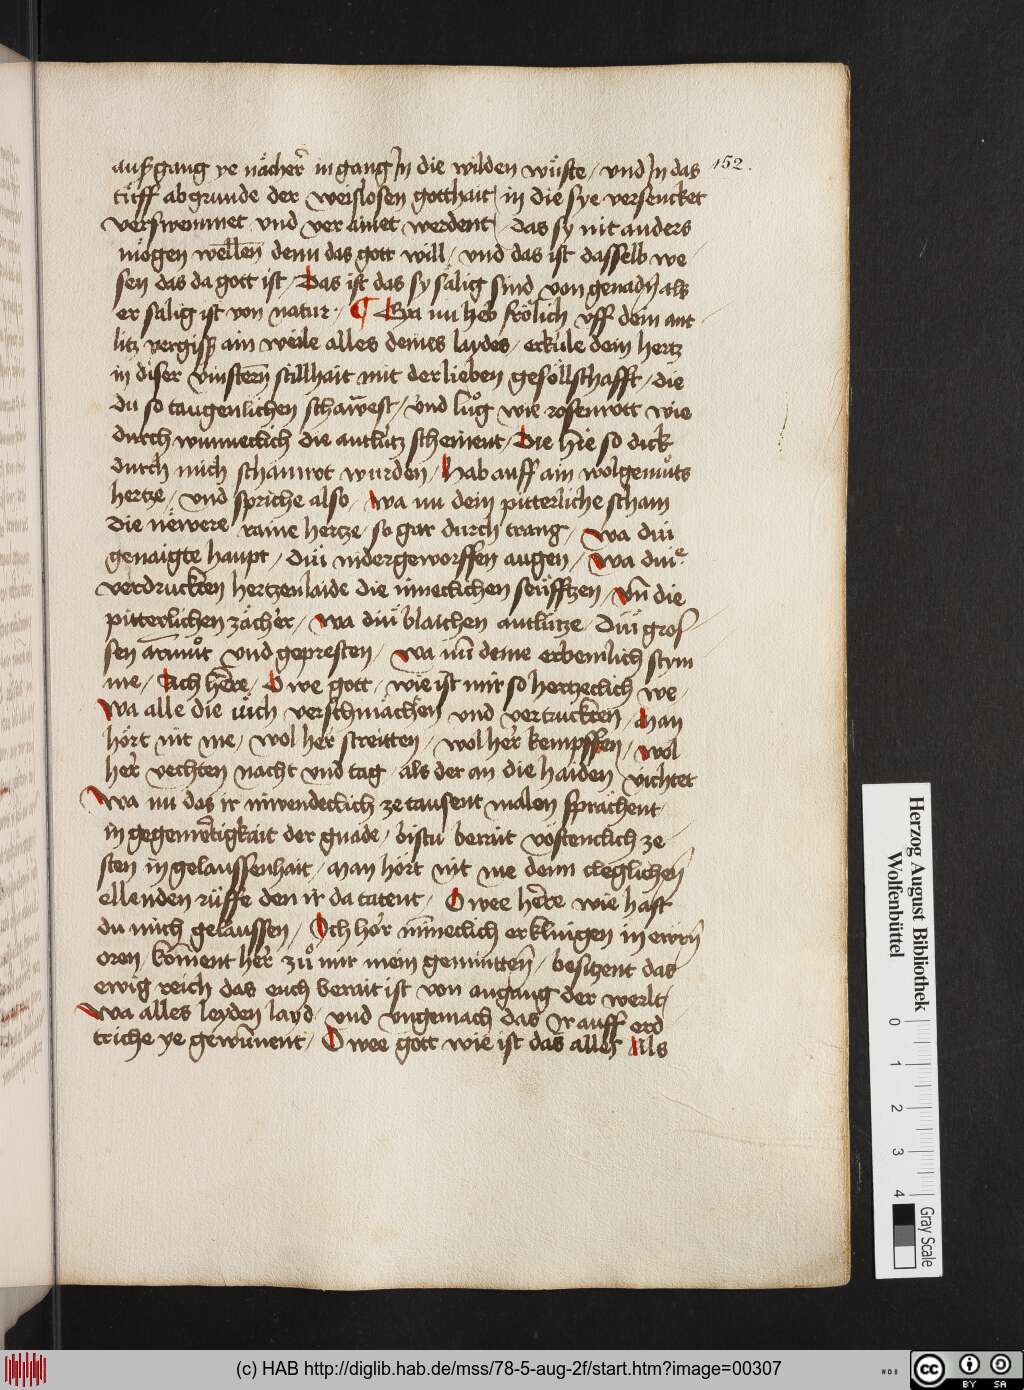 152.
aufgang ye nächer̃ in gang Jn die wilden wůste / vnd Jn das
tieff abgrunde der weislosen gotthait / in die sye versencket
verswemmet vnd ver ainet werdent / das sy nit anders
mögen wellen denn das gott will / vnd das ist dasselb we
sen das da gott ist / Das ist das sy sälig sind von genadn̄ als
er sälig ist von natur / ¶ Eya nu heb frölich vff dem ant
litz vergiss ain weile alles deines laydes / erküle dein hertz
in diser vinstern̄ stillhait mit der lieben gesöllschafft / die
du so taugenlichen schawest / vnd lůg wie rosenrott wie
durch wunneclich die antlütz scheinent / Die hie so dick
durch mich schamrot wurden / Hab auff ain wolgemůts
hertze / vnd spriche also / wa nu dein pitterliche scham
die ewere raine hertze / so gar durch trang / wa düi
genaigte haupt / düi nidergeworffen augen / wa düie
verdruckten hertzenlaide die inneclichen seüfftzen / Vn̄ die
pitterlichen zächer / wa düi blaichen antlütze / Düi gros
sen armůt vnd gepresten / wa nu deine erbemlich stym
me / Ach here / O we gott / wie ist mir so hertzeclich we /
wa alle die üch verschmächen vnd vertruckten / Man
hört nit me / wol her streitten / wol her kempffen / wol
her vechten nacht vnd tag / als der an die haiden vichtet
wa nu das ir inwendeclich ze tausent malen sprachent
in gegenwertigkait der gnade / bistu berait vöstenclich ze
sten in gelaussenhait / Man hört nit me denn cleglichen
ellenden rüffe den ir da tatent / O wee here wie hast
du mich gelaussen / Ich hör mineclich erklingen in ewrn̄
oren / koment her zů mir mein geminten̄ / besitzent das
ewig reich das euch berait ist von angang der werlt /
wa alles leyden layd vnd vngemach das Jr auff erd
triche ye gewunnent / O wee gott wie ist das alles Als
Herzog August Bibliothek
Wolfenbüttel
0 1 2 3 4
Gray Scale
(c) HAB http://diglib.hab.de/mss/78-5-aug-2f/start.htm?image=00307
WDB
cc BY SA